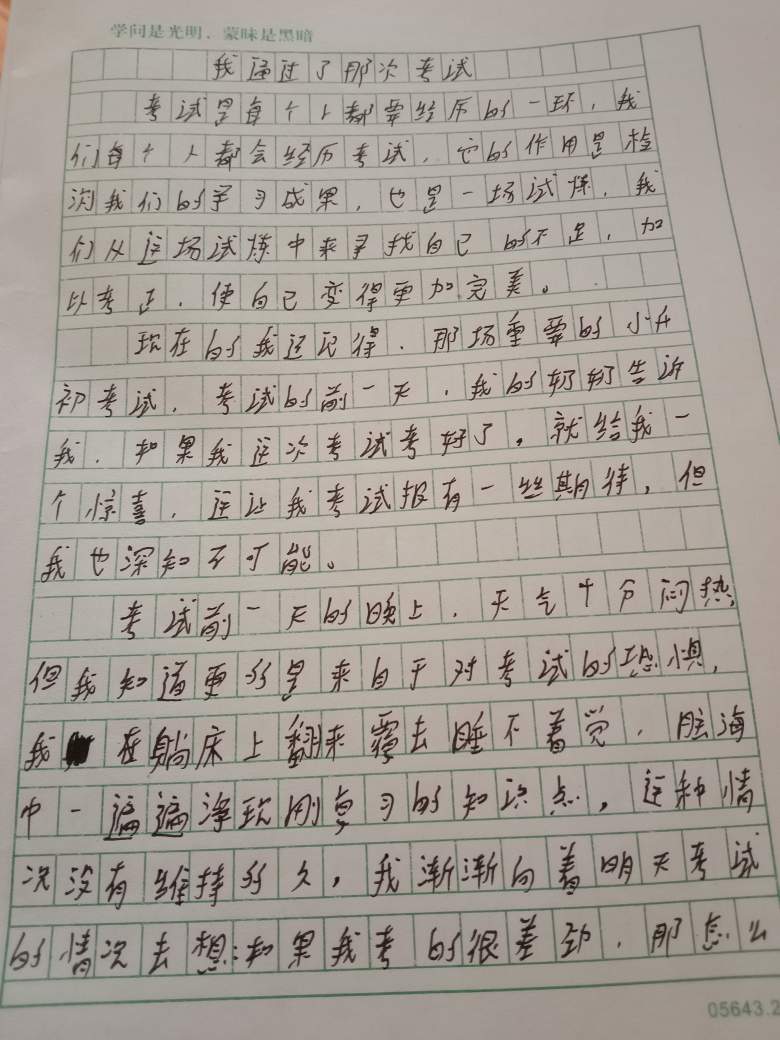 学问是光明，蒙昧是黑暗
我通过了那次考试
考试是每个人都要经历的一环，我
们每个人都会经历考试，它的作用是检
测我们的学习成果，也是一场试炼，我
们从这场试炼中来寻找自己的不足，加
以考正，使自己变得更加完美。
现在的我还记得，那场重要的小升
初考试，考试的前一天，我的奶奶告诉
我，如果我这次考试考好了，就给我一
个惊喜，这让我考试报有一丝期待，但
我也深知不可能。
考试前一天的晚上，天气十分闷热，
但我知道更多是来自于对考试的恐惧，
我在躺床上翻来覆去睡不着觉，脑海
中一遍遍浮现刚复习的知识点，这种情
况没有维持多久，我渐渐向着明天考试
的情况去想：如果我考的很差劲，那怎么
05643.2